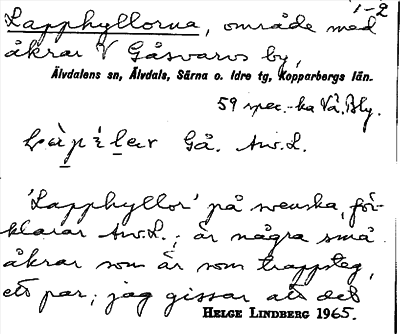 1-2
Lapphyllorna, område med
åkrar V Gåsvarvs by,
Älvdalens sn, Älvdals, Särna o. Idre tg, Kopparbergs län.
59 spec.-ka Vå. Bly.
Gå. Aw.L.
'Lapphyllor' på svenska, för-
klarar Aw.L.; är några små
åkrar som är som trappsteg,
ett par; jag gissar att det
HELGE LINDBERG 1965.